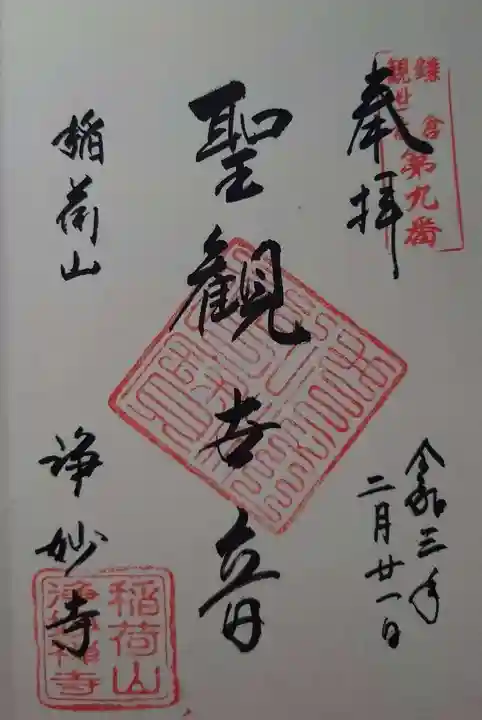 鎌倉
観世音
第九番
奉拝
令和三年
二月廿一日
聖観世音
稲荷山
浄妙寺
稲荷山
浄妙禅寺